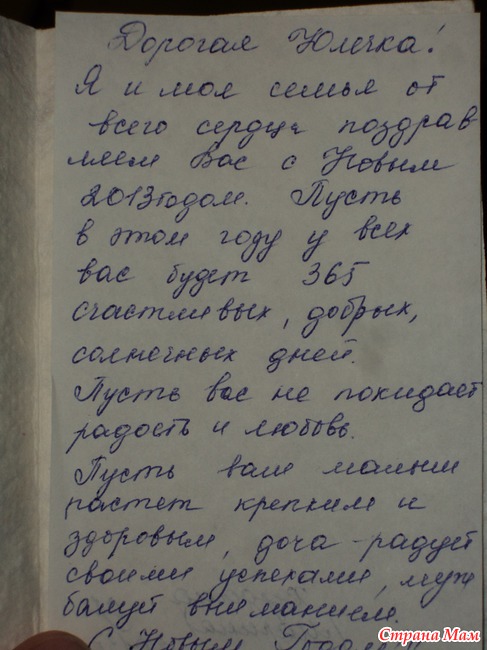 Дорогая Юлечка!
Я и моя семья от
всего сердца поздрав
ляем Вас с Новым
2013годом. Пусть
в этом году у всех
вас будет 365
счастливых, добрых,
солнечных дней.
Пусть вас не покидает
радость и любовь.
Пусть ваш малыш
растет крепким и
здоровым, доча-радует
своими успехами, муж
балует вниманием.
С Новым Годом
Страна Мам